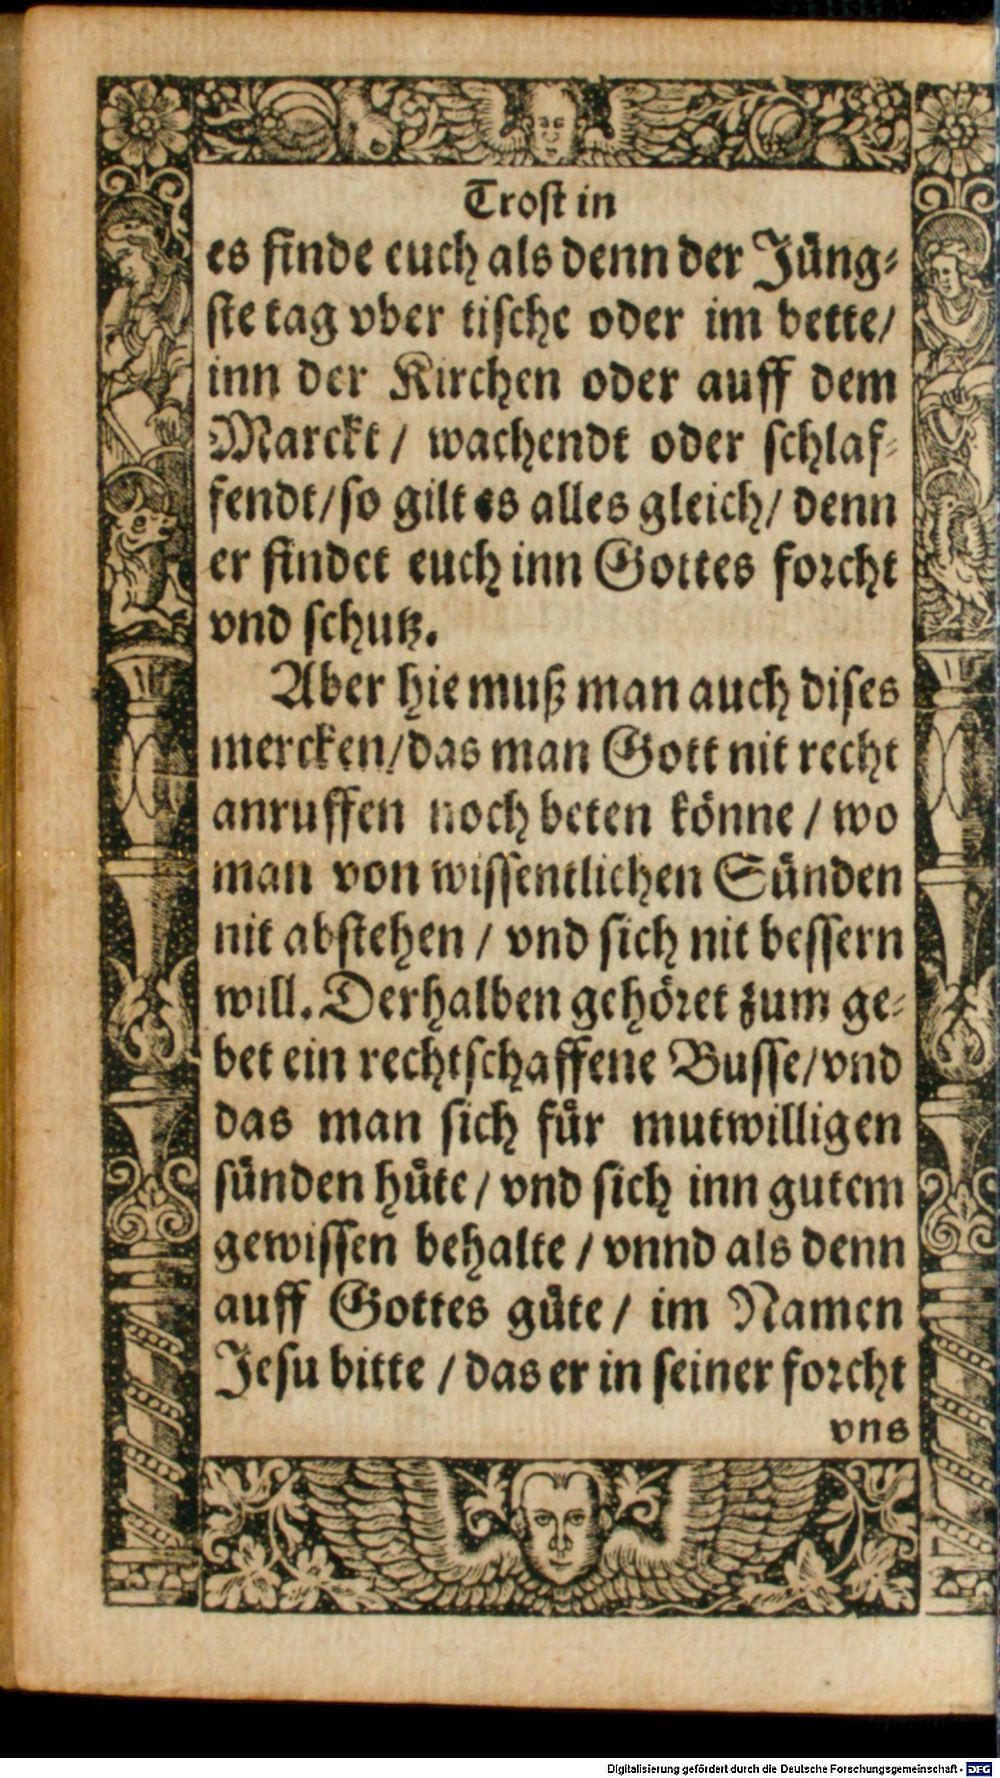 Trost in
es finde euch als denn der Jüng⸗
ste tag vber tische oder im bette/
inn der Kirchen oder auff dem
Marckt/ wachendt oder schlaf⸗
fendt/so gilt es alles gleich/ denn
er findet euch inn Gottes forcht
vnd schutz.
Aber hie muß man auch dises
mercken/das man Gott nit recht
anruffen noch beten könne/ wo
man von wissentlichen Sünden
nit abstehen/ vnd sich nit bessern
will. Derhalben gehöret zum ge⸗
bet ein rechtschaffene Busse/vnd
das man sich für mutwilligen
sünden hüte/ vnd sich inn gutem
gewissen behalte/ vnnd als denn
auff Gottes güte/ im Namen
Jesu bitte/ das er in seiner forcht
vns
Digitalisierung gefördert durch die Deutsche Forschungsgemeinschaft - DFG